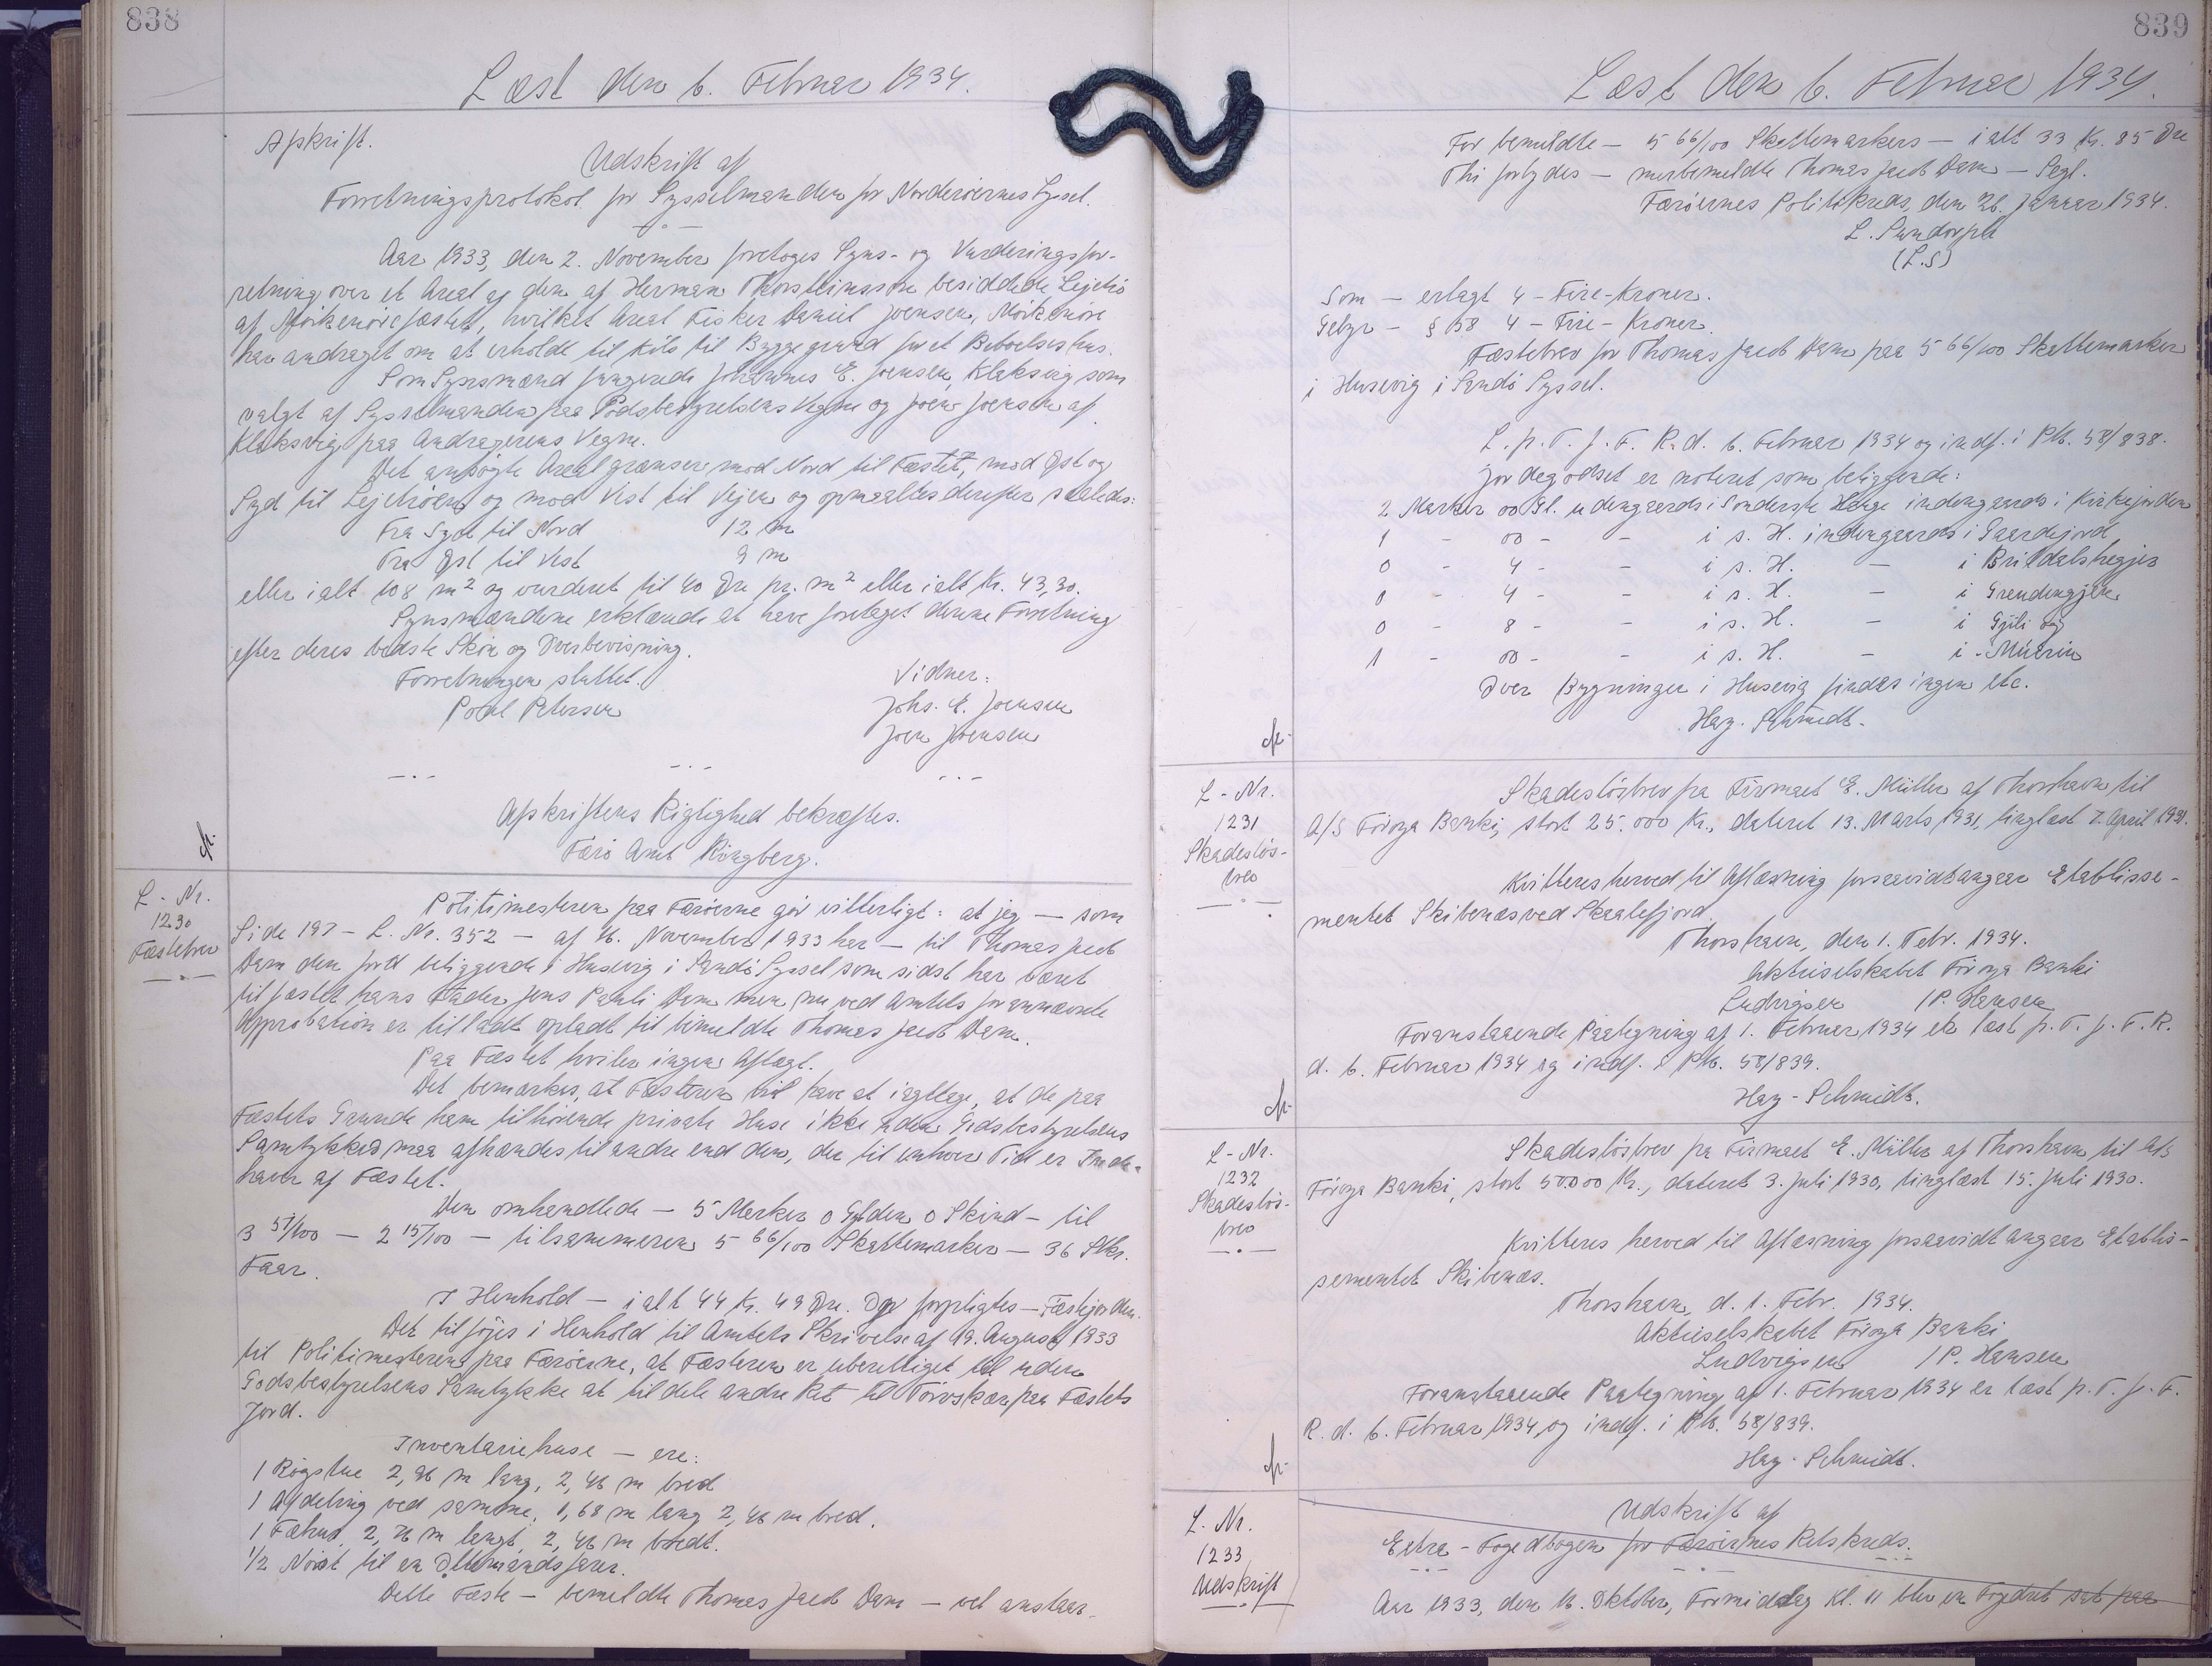 838
Læst den 6. Februar 1934.
Afskrift.
Udskrift af
Forretningsprotokol for Sysselmanden for Norderøernes Syssel.
Aar 1933, den 2. November foretoges Syns- og Vurderingsfor-
retning over et Areal af den af Herman Thorsteinsson besiddede Lejetrö
af Mörkenöre fæstet, hvilket Areal Fisker Daniel Joensen, Mörkenöre
har andraget om at erholde til Köbs til Byggegrund for et Beboelseshus.
Som Synsmænd fungerede Johannes E. Joensen, Klaksvig som
valgt af Sysselmanden paa Godsbestyrelsens Vegne og Joen Joensen af
Klaksvig paa Andragerens Vegne.
Det ansøgte Areal grænser mod Nord til Fæstet, mod Øst og
Syd til Lejetröen og mod Vest til Vejen og opmaaltes derefter saaledes:
Fra Syd til Nord 12 m
Fra Øst til Vest 9 m
eller ialt 108 m² og vurderet til 40 Øre pr. m² eller ialt Kr. 43,30.
Synsmændene erklærede at have foretaget denne Forretning
efter deres bedste Skön og Overbevisning.
Forretningen sluttet.
Vidner:
Poul Petersen
Johs. E. Joensen
Joen Joensen
Afskriftens Rigtighed bekræftes.
Færö Amt Ringberg.
L - Nr.
1230
Fæstebrev
Politimesteren paa Færöerne gör vitterligt: at jeg — som
Side 197 - L. Nr. 352 — af 16. November 1933 har — til Thomas Jacob
Dam den Jord beliggende i Husevig i Sandö Syssel som sidst har været
til fæstet hans Fader Jens Pauli Dam men nu ved Amtets forannævnte
Approbation er tilladt opladt til bemeldte Thomas Jacob Dam.
Paa Fæstet hviler ingen Aftægt.
Det bemærkes, at Fæsteren vil have at iagttage, at de paa
Fæstets Grunde ham tilhörende private Huse ikke uden Godsbestyrelsens
Samtykke maa afhændes til andre end den, der til enhver Tid er Inde-
haver af Fæstet.
Den omhandlede — 5 Marker 0 Gylden 0 Skind — til
3 51/100 — 2 15/100 — tilsammen 5 66/100 Skattemarker — 36 Stkr.
Faar.
I Henhold — ialt 44 Kr. 49 Øre. Og forpligtes — Fæstejorden.
Det tilföjes i Henhold til Amtets Skrivelse af 19. August 1933
til Politimesteren paa Færöerne, at Fæsteren er uberettiget til uden
Godsbestyrelsens Samtykke at tildele andre Ret til Törveskær paa Fæstets
Jord.
Inventariehuse — ere:
1 Rögstue 2,96 m lang, 2,46 m bred
1 Afdeling ved samme, 1,68 m lang 2,46 m bred.
1 Fæhus, 2,76 m langt, 2,46 m bredt.
1/2 Nöst til en Ottemandsfarer.
Dette Fæste — bemeldte Thomas Jacob Dam — vel anstaar.
839
Læst den 6. Februar 1934.
For bemeldte — 5 66/100 Skattemarkers — ialt 33 Kr. 85 Øre
Thi forbydes — merbemeldte Thomas Jacob Dam — Segl.
Færöernes Politikreds, den 26. Januar 1934.
L. Sundorph
(L.S)
Som — erlagt 4 - Fire - Kroner.
Gebyr — § 58 4 - Fire - Kroner.
Fæstebrev for Thomas Jacob Dam paa 5 66/100 Skattemarker
i Husevig i Sandö Syssel.
L. p. T. f. F. R. d. 6. Februar 1934 og indf. i Ptk. 58/838.
Jordegodset er noteret som beliggende:
2 Marker 00 Gl. udengaards i Sönderste Hauge indengaards i Kirkejorden
1 - 00 - - i s. H. indengaards i Gaardejord
0 - 4 - - i s. H. — i Brildalshegjer
0 - 4 - - i s. H. — i Grendengjen
0 - 8 - - i s. H. — i Gjili og
1 - 00 - - i s. H. — i Mürin
Over Bygninger i Husevig findes ingen etc.
Hay-Schmidt.
L - Nr.
1231
Skadeslös-
brev
Skadeslösbrev fra Firmaet E. Müller af Thorshavn til
A/S Föroya Banki, stort 25.000 Kr., dateret 13. Marts 1931, tinglæst 7. April 1931.
Kvitteres herved til Aflæsning forsaavidt angaar Etablisse-
mentet Skibenæs ved Skaalefjord.
Thorshavn, den 1. Febr. 1934.
Aktieselskabet Föroya Banki
Ludvigsen / P. Hansen
Foranstaaende Paategning af 1. Februar 1934 er læst p. T. f. F. R.
d. 6. Februar 1934 og indf. i Ptk. 58/839.
Hay-Schmidt.
L - Nr.
1232
Skadeslös-
brev
Skadeslösbrev fra Firmaet E. Müller af Thorshavn til A/S
Föroya Banki, stort 50.000 Kr., dateret 3. Juli 1930, tinglæst 15. Juli 1930.
Kvitteres herved til Aflæsning forsaavidt angaar Etablis-
sementet Skibenæs.
Thorshavn, d. 1. Febr. 1934.
Aktieselskabet Föroya Banki
Ludvigsen / P. Hansen
Foranstaaende Paategning af 1. Februar 1934 er læst p. T. f. F.
R. d. 6. Februar 1934 og indf. i Ptk. 58/839.
Hay-Schmidt.
L. Nr.
1233
Udskrift
Udskrift af
Extra - Fogedbogen for Færöernes Retskreds.
Aar 1933, den 16. Oktober, Formiddag Kl. 11 blev en Fogedret sat paa